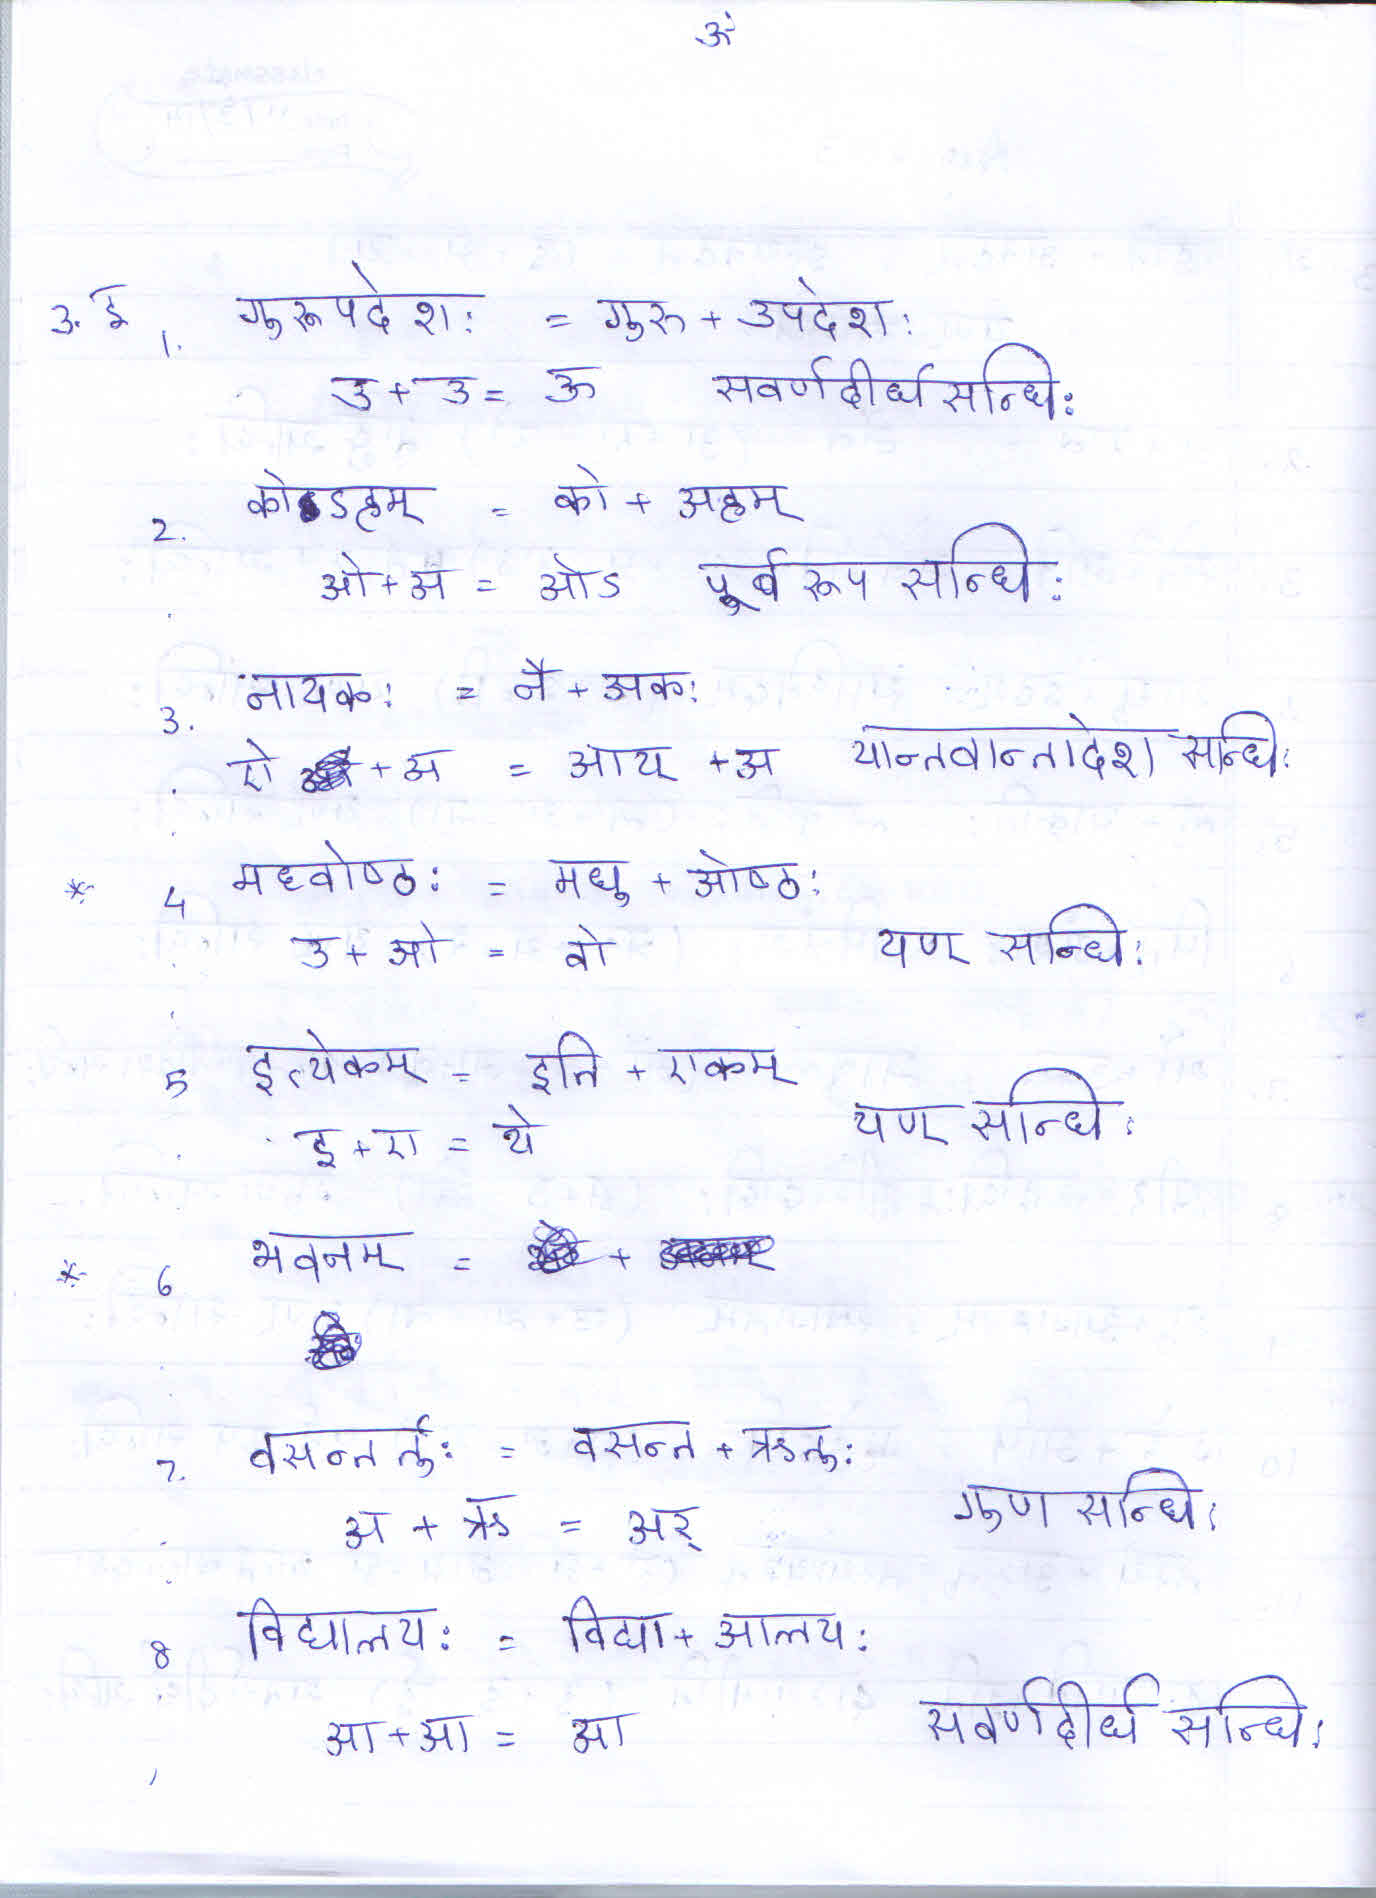 ॐ
3. ई 1. गुरूपदेशः = गुरु + उपदेशः
उ + उ = ऊ सवर्णदीर्घ सन्धिः
2. कोऽहम् = को + अहम्
ओ + अ = ओऽ पूर्वरूप सन्धिः
3. नायकः = नै + अकः
ऐ + अ = आय् + अ यान्तवान्तादेश सन्धिः
* 4 मध्वोष्ठः = मधु + ओष्ठः
उ + ओ = वो यण् सन्धिः
5 इत्येकम् = इति + एकम्
इ + ए = ये यण् सन्धिः
* 6 भवनम् = +
7. वसन्तर्तुः = वसन्त + ऋतुः
अ + ऋ = अर् गुण सन्धिः
8 विद्यालयः = विद्या + आलयः
आ + आ = आ सवर्णदीर्घ सन्धिः